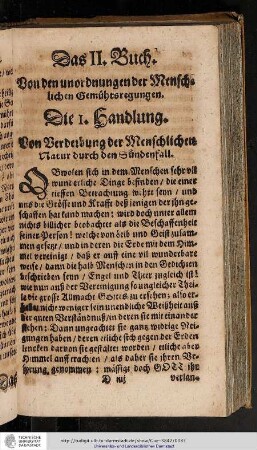 Das II. Buch.
Von den unordnungen der Mensch-
lichen Gemühtsregungen.
Die I. Handlung.
Von Verderbung der Menschlichen
Natur durch den Sündenfall.
OBwolen sich in dem Menschen sehr vil
wunderliche Dinge befinden / die einer
tieffen Betrachtung wehrt seyn / und
uns die Grösse und Krafft deß jenigen der ihn ge-
schaffen hat kund machen : wird doch unter allem
nichts billicher beobachtet als die Beschaffenheit
seiner Person / welche von Leib und Geist zusam-
men gesetzt / und in deren die Erde mit dem Him-
mel vereinigt / daß er auff eine vil wunderbare
weise / dann die halb Menschen in den Gedichten
beschrieben seyn / Engel und Thier zugleich ist :
wie nun auß der Vereinigung so ungleicher Thei-
le die grosse Allmacht Gottes zu ersehen : also er-
hellet nicht weniger sein unendliche Weißheit auß
der guten Verständnuß / in deren sie mit einander
stehen : Dann ungeachtet sie gantz widrige Nei-
gungen haben / deren etliche sich gegen der Erde
sencken darvon sie gestaltet worden / etliche aber
Himmel auff trachten / als daher sie ihren Ve-
sprung genommen : mässigt doch GOTT ihr
D iiij verlan-
TECHNISCHE
UNIVERSITÄT
DARMSTADT
Universitäts- und Landesbibliothek Darmstadt